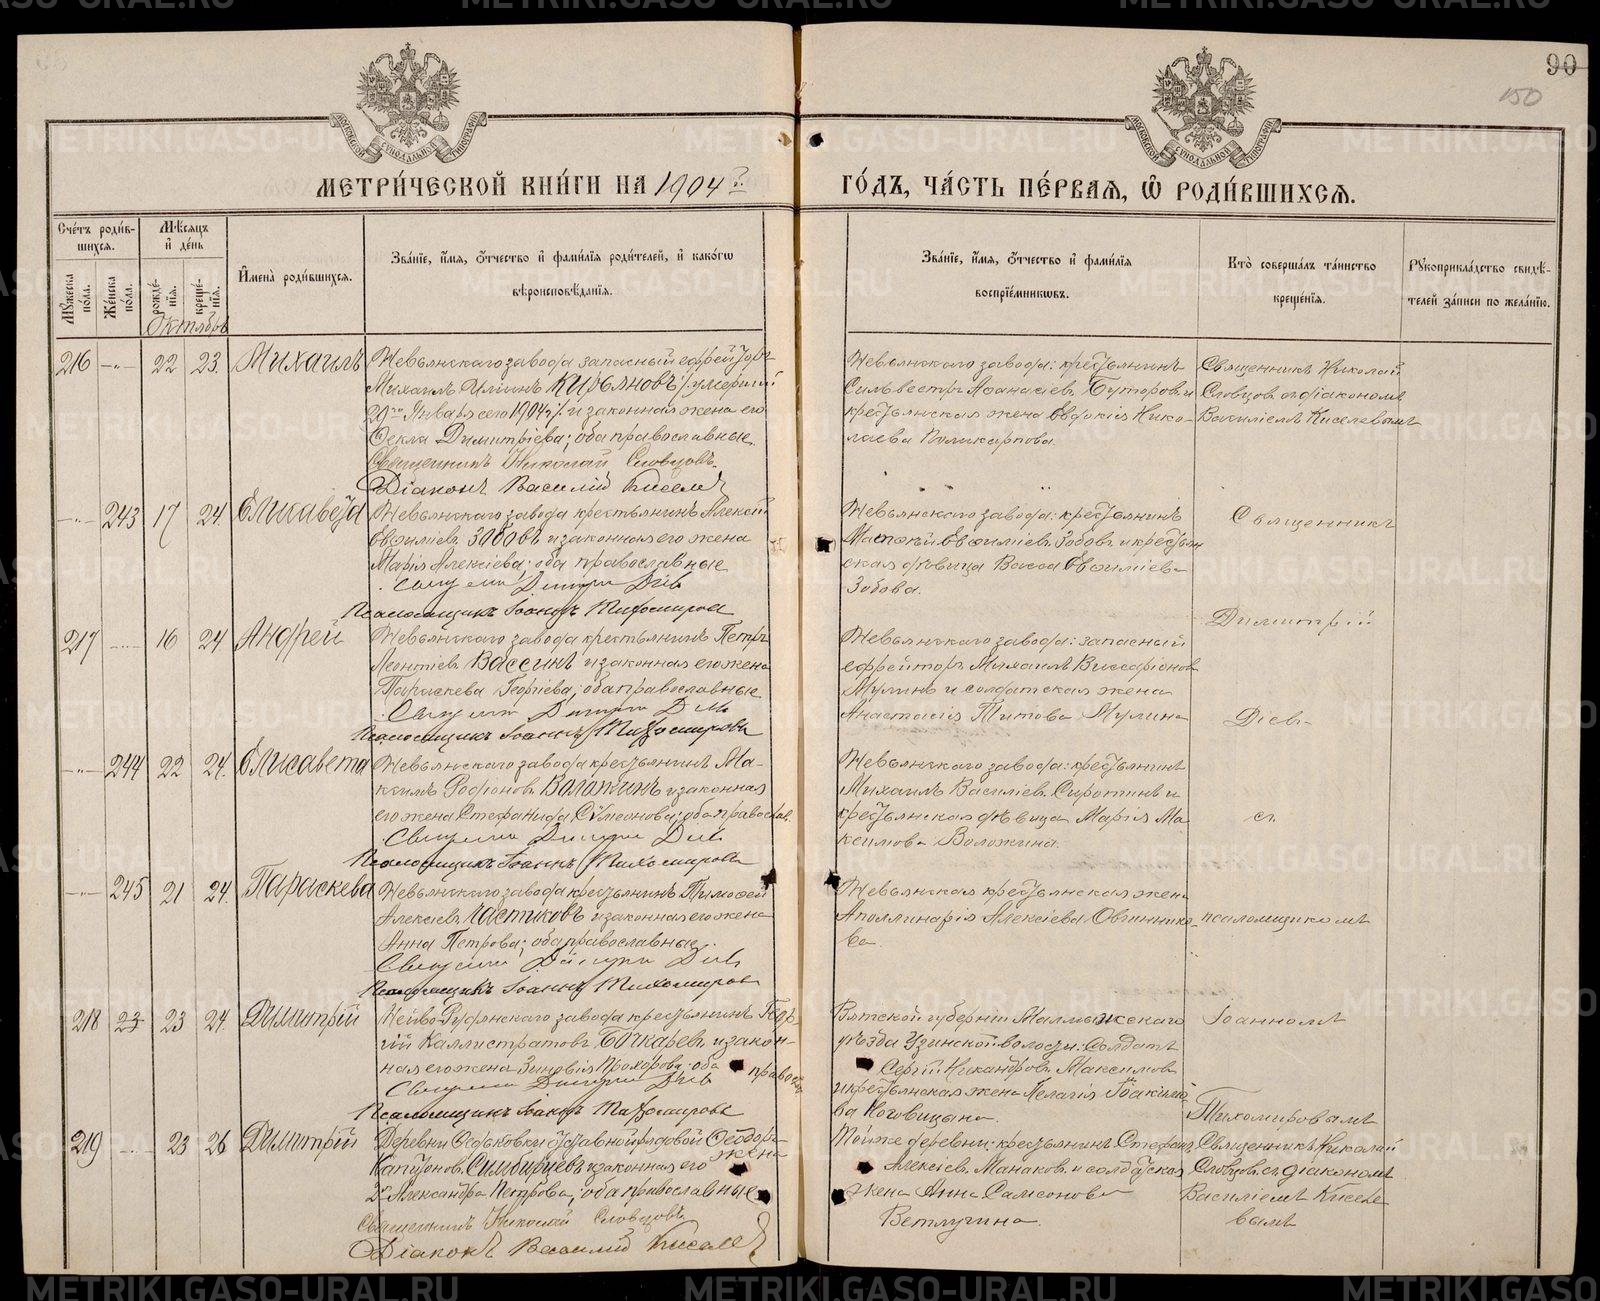 90
150
МОСКОВСКОЙ СѴНОДАЛЬНОЙ ТИПОГРАФІИ
МОСКОВСКОЙ СѴНОДАЛЬНОЙ ТИПОГРАФІИ
МЕТРИ́ЧЕСКОЙ КНИ́ГИ НА 1904 г.
ГО́ДЪ, ЧА́СТЬ ПЕ́РВАЯ, Ѡ РОДИ́ВШИХСЯ.
Сче́тъ роди́в-
шихся.
Му́жеска по́ла.
Же́нска по́ла.
Мѣ́сяцъ
и҆ де́нь
рожде́-
нїя.
креще́-
нїя.
Октябрь
И҆мена̀ роди́вшихся.
Зва́нїе, и҆́мя, ѻ҆́тчество и҆ фами́лїя роди́телей, и҆ како́гѡ
вѣроисповѣ́данїя.
Зва́нїе, и҆́мя, ѻ҆́тчество и҆ фами́лїя
воспрїе́мникѡвъ.
Кто̀ соверша́лъ та́инство
креще́нїя.
Рꙋкоприкла́дство свидѣ́-
телей за́писи по жела́нїю.
216 —„— 22 23. Михаилъ
Невьянскаго завода запасный ефрейторъ
Михаилъ Ильинъ Кирьяновъ /: умершій
29го Января сего 1904 г/. и законная жена его
Ѳекла Димитріева; оба православные.
Священникъ Николай Словцовъ.
Діаконъ Василій Киселевъ
Невьянскаго завода: крестьянинъ
Сильвестръ Аѳанасіевъ Буторовъ и
крестьянская жена Евдокія Нико-
лаева Поликарпова.
Священникъ Николай
Словцовъ съ діакономъ
Василіемъ Киселевымъ
—„— 243 17 24. Елисавета
Невьянскаго завода крестьянинъ Алексѣй
Евѳиміевъ Зобовъ и законная его жена
Марія Алексіева; оба православные
Священникъ Димитрій Діевъ
Псаломщикъ Іоаннъ Тихомировъ
Невьянскаго завода: крестьянинъ
Евѳиміевъ Зобовъ и крестьян
ская дѣвица Васса Евѳиміева
Зобова.
Священникъ
Димитрій
217 —„— 16 24 Андрей
Невьянскаго завода крестьянинъ Петръ
Леонтіевъ Вассинъ и законная его жена
Параскева Георгіева; оба православные
Священникъ Димитрій Діевъ
Псаломщикъ Іоаннъ Тихомировъ
Невьянскаго завода: запасный
ефрейторъ Михаилъ Виссаріоновъ
Мулинъ и солдатская жена
Анастасія Титова Мулина
Діевъ
—„— 244 22 24. Елисавета
Невьянскаго завода крестьянинъ Ма-
ксимъ Родіоновъ Воложинъ и законная
его жена Стефанида Сѵмеонова; оба православ.
Священникъ Димитрій Діевъ
Псаломщикъ Іоаннъ Тихомировъ
Невьянскаго завода: крестьянинъ
Михаилъ Василіевъ Сиротинъ и
крестьянская дѣвица Марія Ма
ксимова Воложина.
съ
—„— 245 21 24. Параскева
Невьянскаго завода крестьянинъ Тимоѳей
Алексіевъ Частиковъ и законная его жена
Анна Петрова; оба православные.
Священникъ Димитрій Діевъ
Псаломщикъ Іоаннъ Тихомировъ
Невьянская крестьянская жена
Аполлинарія Алексіева Овчиннико-
ва.
псаломщикомъ
218 23 23 24. Димитрій
Нейво-Рудянскаго завода крестьянинъ Геор-
гій Каллистратовъ Бочкаревъ и закон-
ная его жена Зиновія Прохорова; оба правосл.
Священникъ Димитрій Діевъ
Псаломщикъ Іоаннъ Тихомировъ
Вятской губерніи Малмыжскаго
уѣзда Узинской волости: солдатъ
Сергій Никандровъ Максимовъ
и крестьянская жена Пелагія Іоакимо
ва Ноговицына.
Іоанномъ
Тихомировымъ
219 —„— 23 26 Димитрій
Деревни Ѳедьковки отставной рядовой Ѳеодоръ
Капитоновъ Симбирцевъ и законная его жена
2я Александра Петрова; оба православные
Священникъ Николай Словцовъ
Діаконъ Василій Киселевъ
Той же деревни: крестьянинъ Стефанъ
Алексіевъ Манаковъ и солдатская
жена Анна Самсонова
Ветлугина.
Священникъ Николай
Словцовъ съ діакономъ
Василіемъ Киселе
вымъ
METRIKI.GASO-URAL.RU